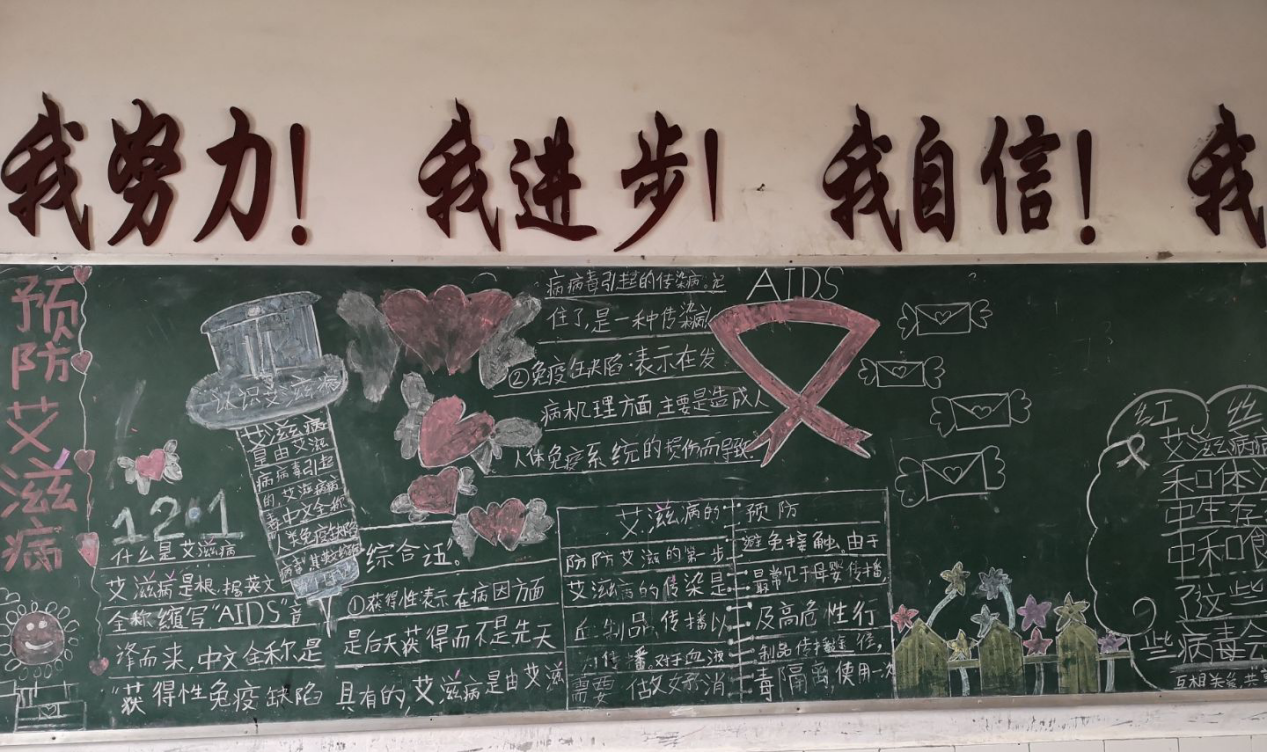 我努力！ 我进步！ 我自信！ 我
预防艾滋病
12·1
什么是艾滋病
艾滋病是根据英文
全称缩写"AIDS"音
译而来,中文全称是
"获得性免疫缺陷
认识艾滋病
艾滋病
是由艾滋
病病毒引起
的,艾滋病病
毒中文全称
人类免疫缺陷
综合证"。
①获得性表示在病因方面
是后天获得而不是先天
具有的,艾滋病是由艾滋
病病毒引起的传染病。记
住了,是一种传染病
②免疫缺陷:表示在发
病机理方面,主要是造成人
人体免疫系统的损伤而导致
AIDS
艾滋病的
预防
防防艾滋的第一步
艾滋病的传染是
制品,传播以
传播,对于血液
需要 做好消
避免接触。由于
最常见于母婴传播,
及高危性行
制品传播途径,
毒隔离,使用一次
红 丝
艾滋病病
和体
中生存
中和
了这些
些病毒会
互相关爱,共